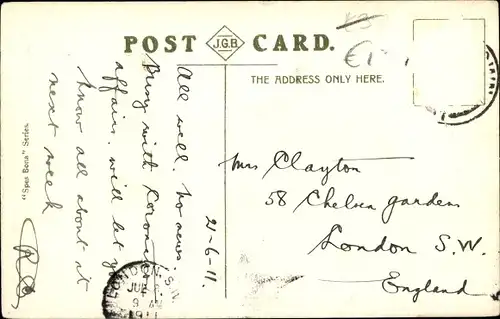 POST J.G.B. CARD.
THE ADDRESS ONLY HERE.
£3
€1
21-6-11.
All well. No news
Busy with Coronation
affairs. will let you
know all about it
next week
"Spes Bona" Series.
Mrs Clayton
58 Chelsea gardens
London S.W.
England
LONDON. S.W.
9
1911